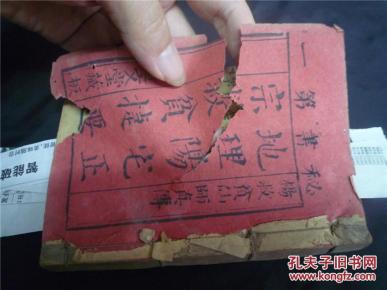 秘書第一
楊救貧仙師真傳
地理陽宅正
宗救貧捷要
文堂藏板
智能破
孔夫子旧书网